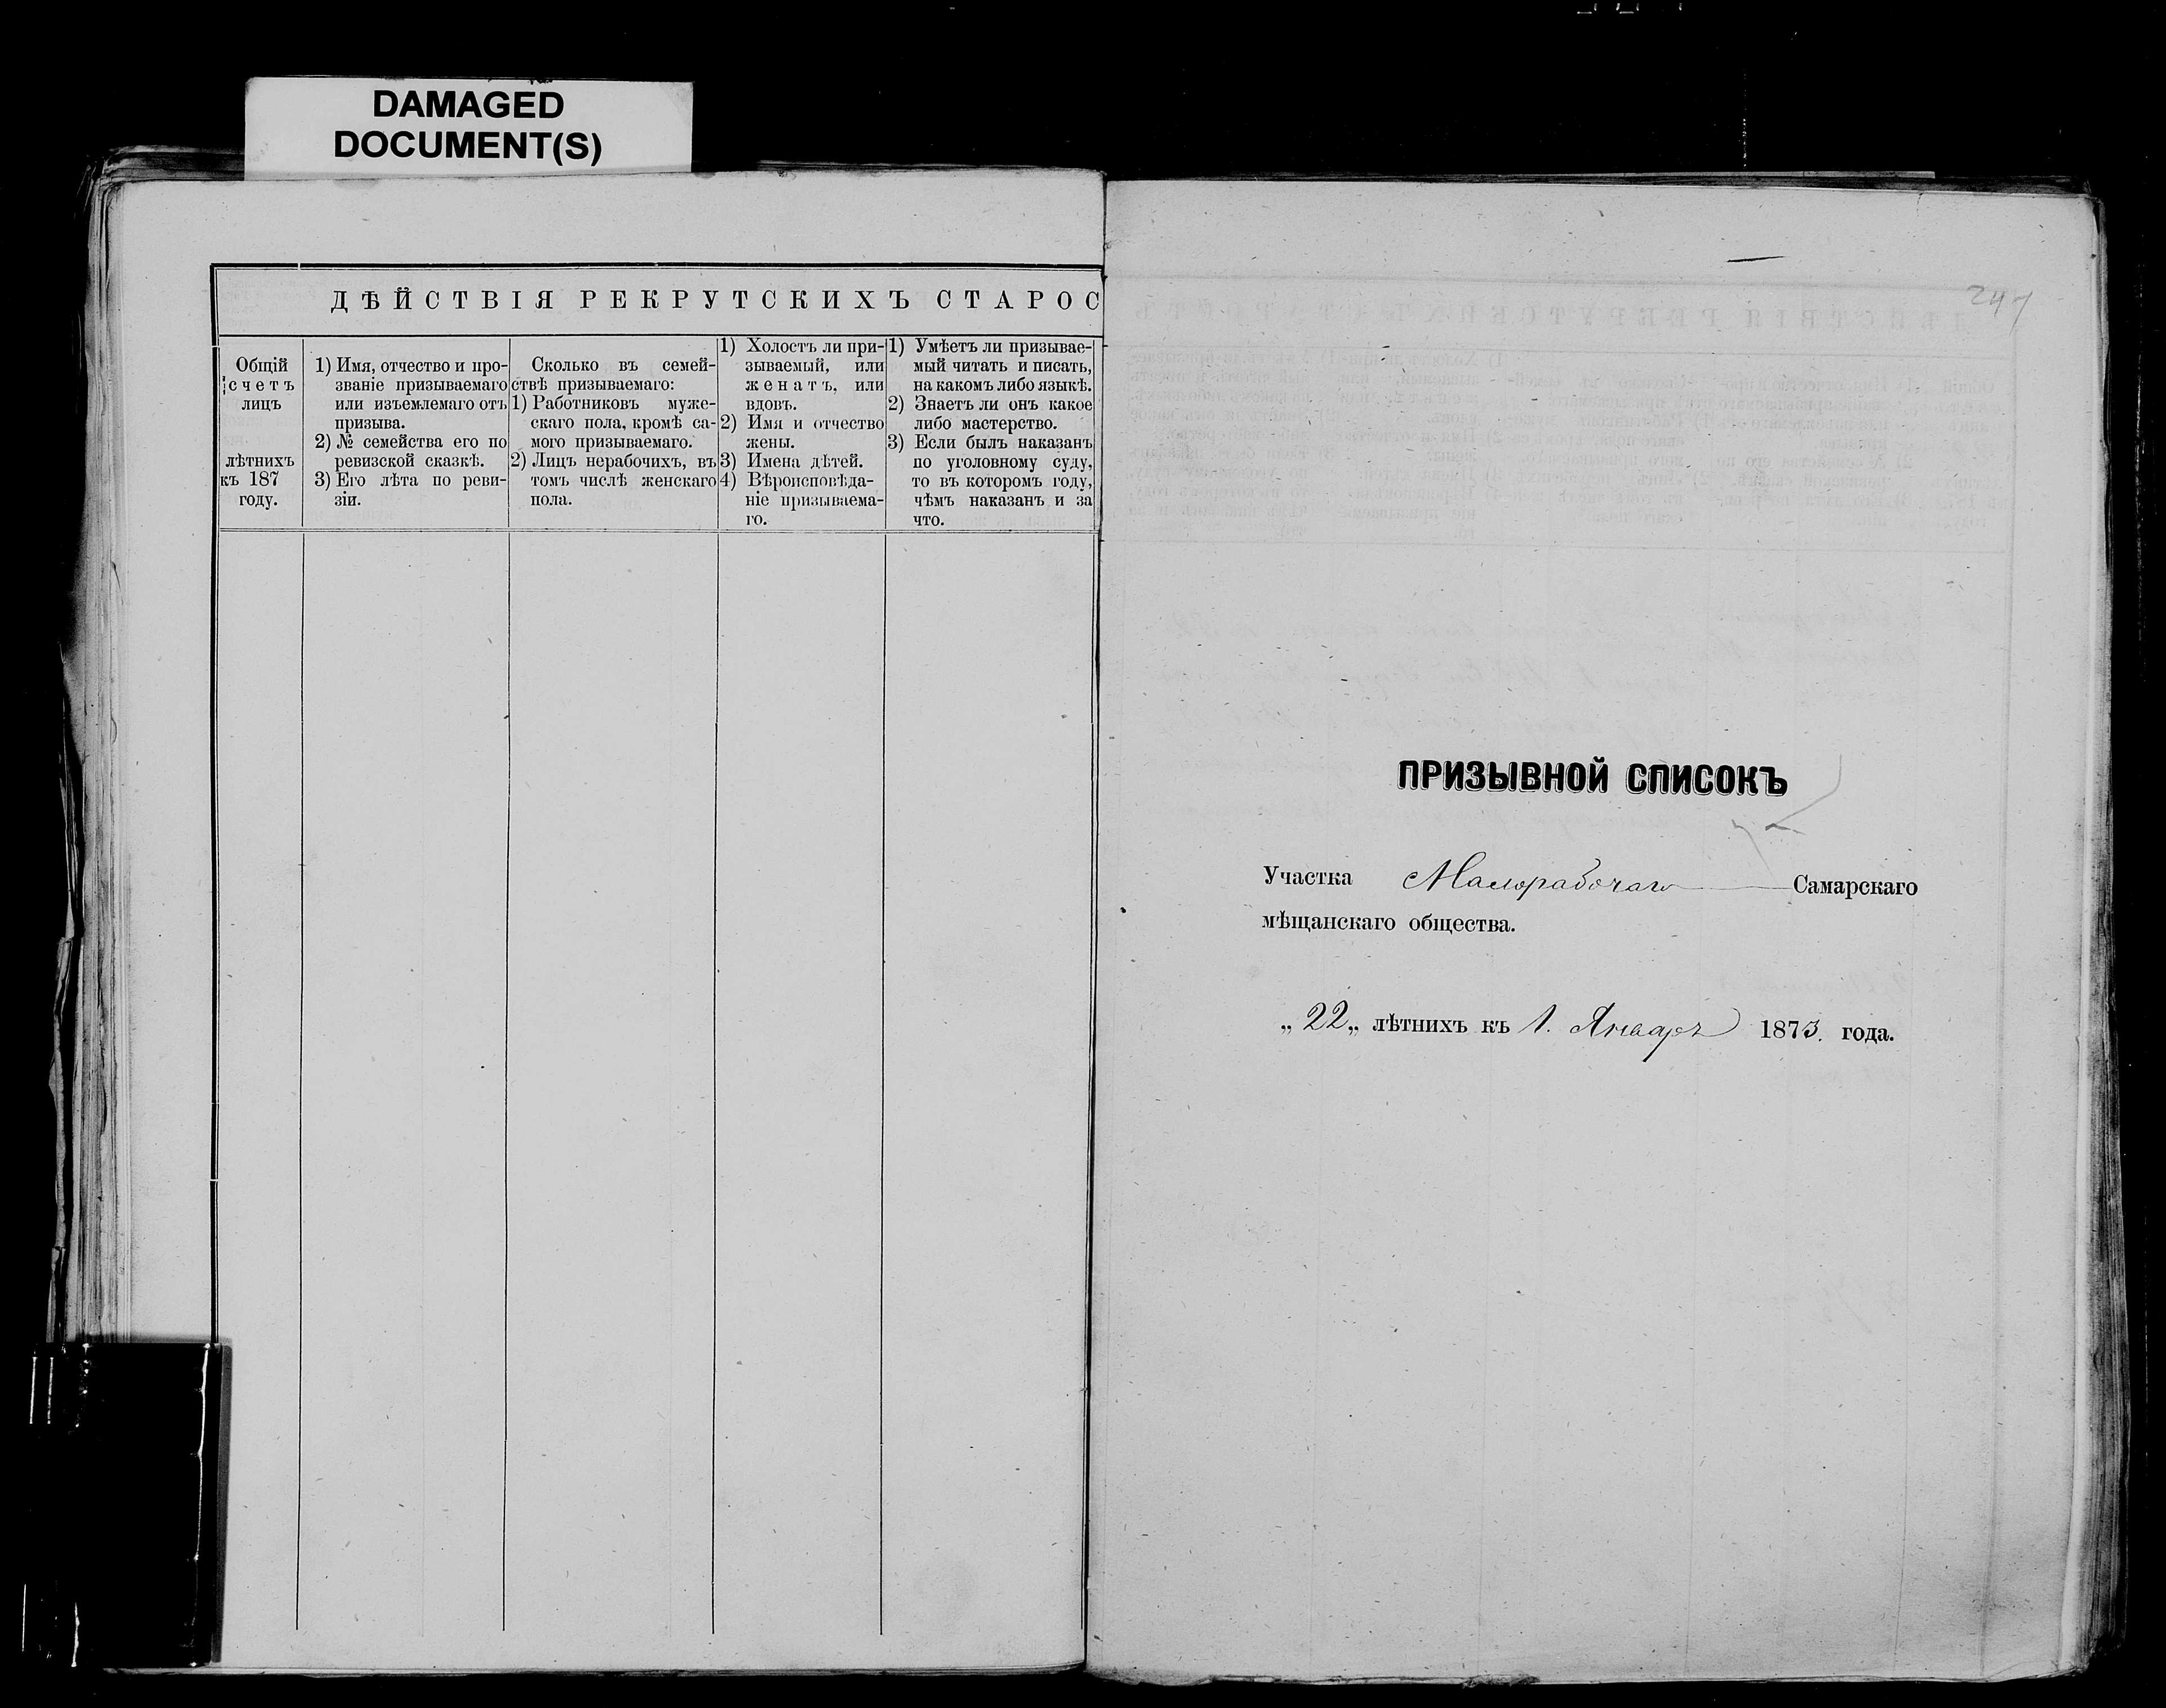 DAMAGED
DOCUMENT(S)
ДѢЙСТВІЯ РЕКРУТСКИХЪ СТАРОС
Общій
счетъ
лицъ
лѣтнихъ
къ 187
году.
1) Имя, отчество и про-
званіе призываемаго
или изъемлемаго отъ
призыва.
2) № семейства его по
ревизской сказкѣ.
3) Его лѣта по реви-
зіи.
Сколько въ семей-
ствѣ призываемаго:
1) Работниковъ муже-
скаго пола, кромѣ са-
мого призываемаго.
2) Лицъ нерабочихъ, въ
томъ числѣ женскаго
пола.
1) Холостъ ли при-
зываемый, или
женатъ, или
вдовъ.
2) Имя и отчество
жены.
3) Имена дѣтей.
4) Вѣроисповѣда-
ніе призываема-
го.
1) Умѣетъ ли призывае-
мый читать и писать,
на какомъ либо языкѣ.
2) Знаетъ ли онъ какое
либо мастерство.
3) Если былъ наказанъ
по уголовному суду,
то въ которомъ году,
чѣмъ наказанъ и за
что.
247
ПРИЗЫВНОЙ СПИСОКЪ
Участка Малорабочаго Самарскаго
мѣщанскаго общества.
„22„ лѣтнихъ къ 1. Января 1873. года.